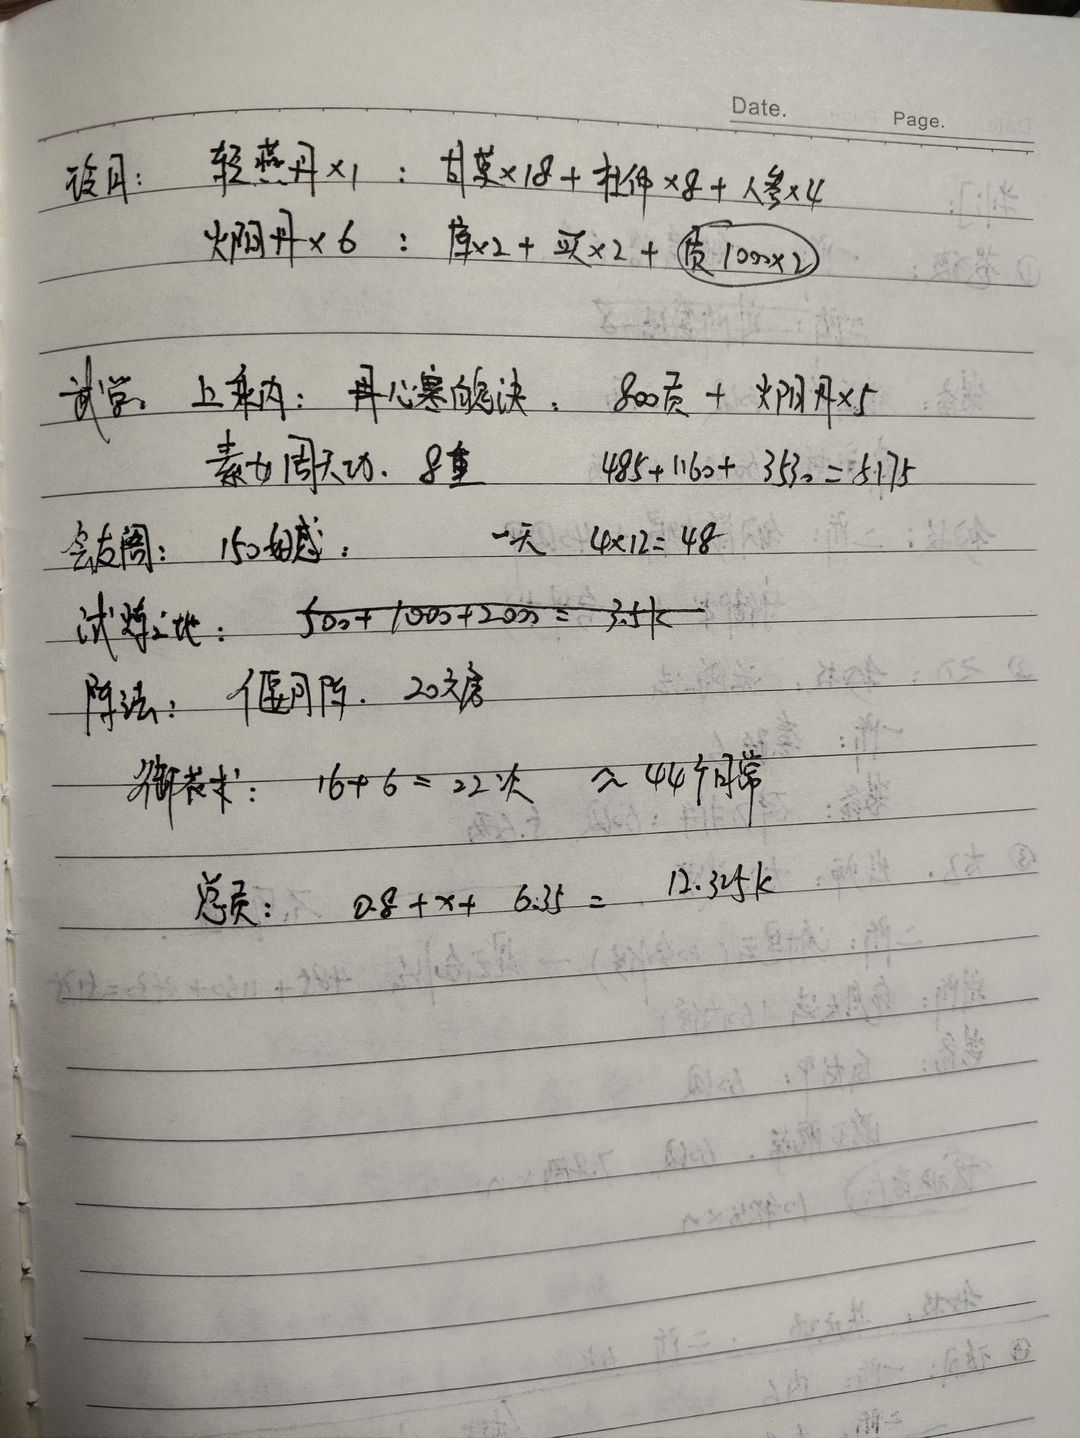 Date.
Page.
设月： 轻燕丹×1 ： 甘草×18 + 杜仲×8 + 人参×4
火阴丹×6 ： 库×2 + 买×2 + 贡1000×2
武学： 上乘内： 丹心寒 决： 800贡 + 火阴丹×5
素女周天功. 8重 485+1160+3530=5175
会友阁： 150好感： 一天 4×12=48
试炼之地： 500+1000+2000=3.5k
阵法： 偃月阵. 20
御 术： 16+6=22次 ≈44个日常
总贡： 0.8+x+ 6.35 = 12.325k